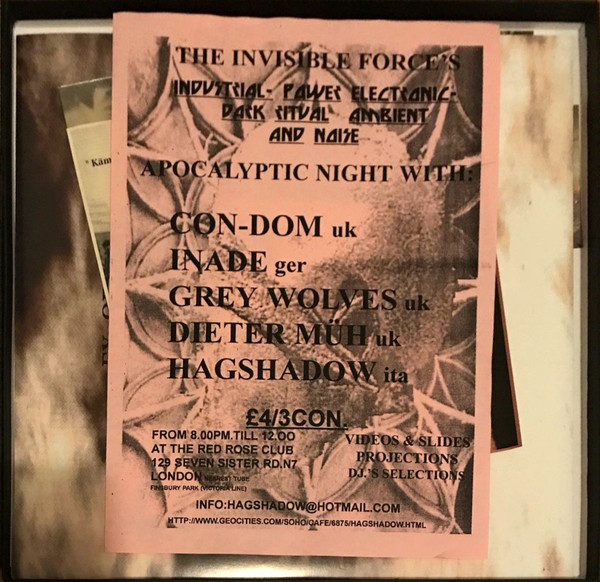 THE INVISIBLE FORCE'S
INDUSTRIAL- POWER ELECTRONIC-
DARK RITUAL AMBIENT
AND NOISE
APOCALYPTIC NIGHT WITH:
CON-DOM uk
INADE ger
GREY WOLVES uk
DIETER MÜH uk
HAGSHADOW ita
£4/3CON.
FROM 8.00PM.TILL 12.OO
AT THE RED ROSE CLUB
129 SEVEN SISTER RD.N7
LONDON NEAREST TUBE
FINSBURY PARK (VICTORIA LINE)
VIDEOS & SLIDES
PROJECTIONS
D.J.'S SELECTIONS
INFO:HAGSHADOW@HOTMAIL.COM
HTTP://WWW.GEOCITIES.COM/SOHO/CAFE/6875/HAGSHADOW.HTML